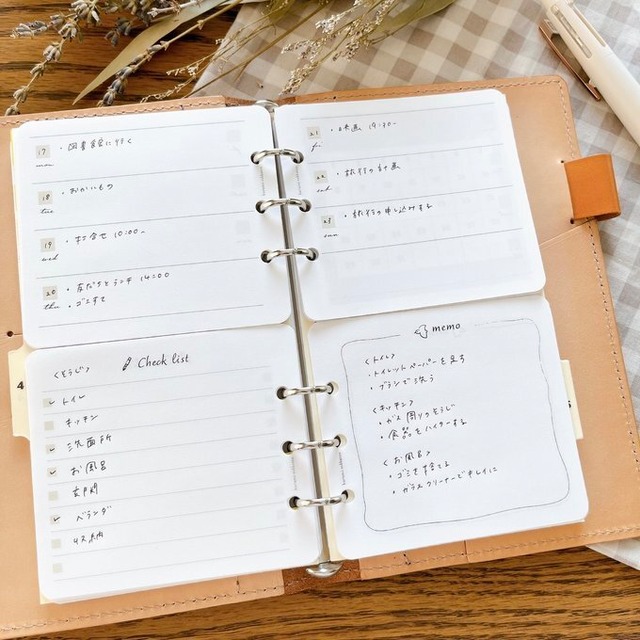 17
mon
・図書館に行く
18
tue
・おかいもの
19
wed
・打合せ 10:00〜
20
thu
・友だちとランチ 14:00
・ゴミすて
21
fri
・映画 19:30〜
22
sat
・旅行の計画
23
sun
・旅行の申し込みする
4
Check list
<そうじ>
トイレ
キッチン
洗面所
お風呂
玄関
ベランダ
収納
memo
<トイレ>
・トイレットペーパーを足す
・ブラシで洗う
<キッチン>
・ガス周りのそうじ
・食器をハイターする
<お風呂>
・ゴミを捨てる
・ガラスクリーナーでキレイに